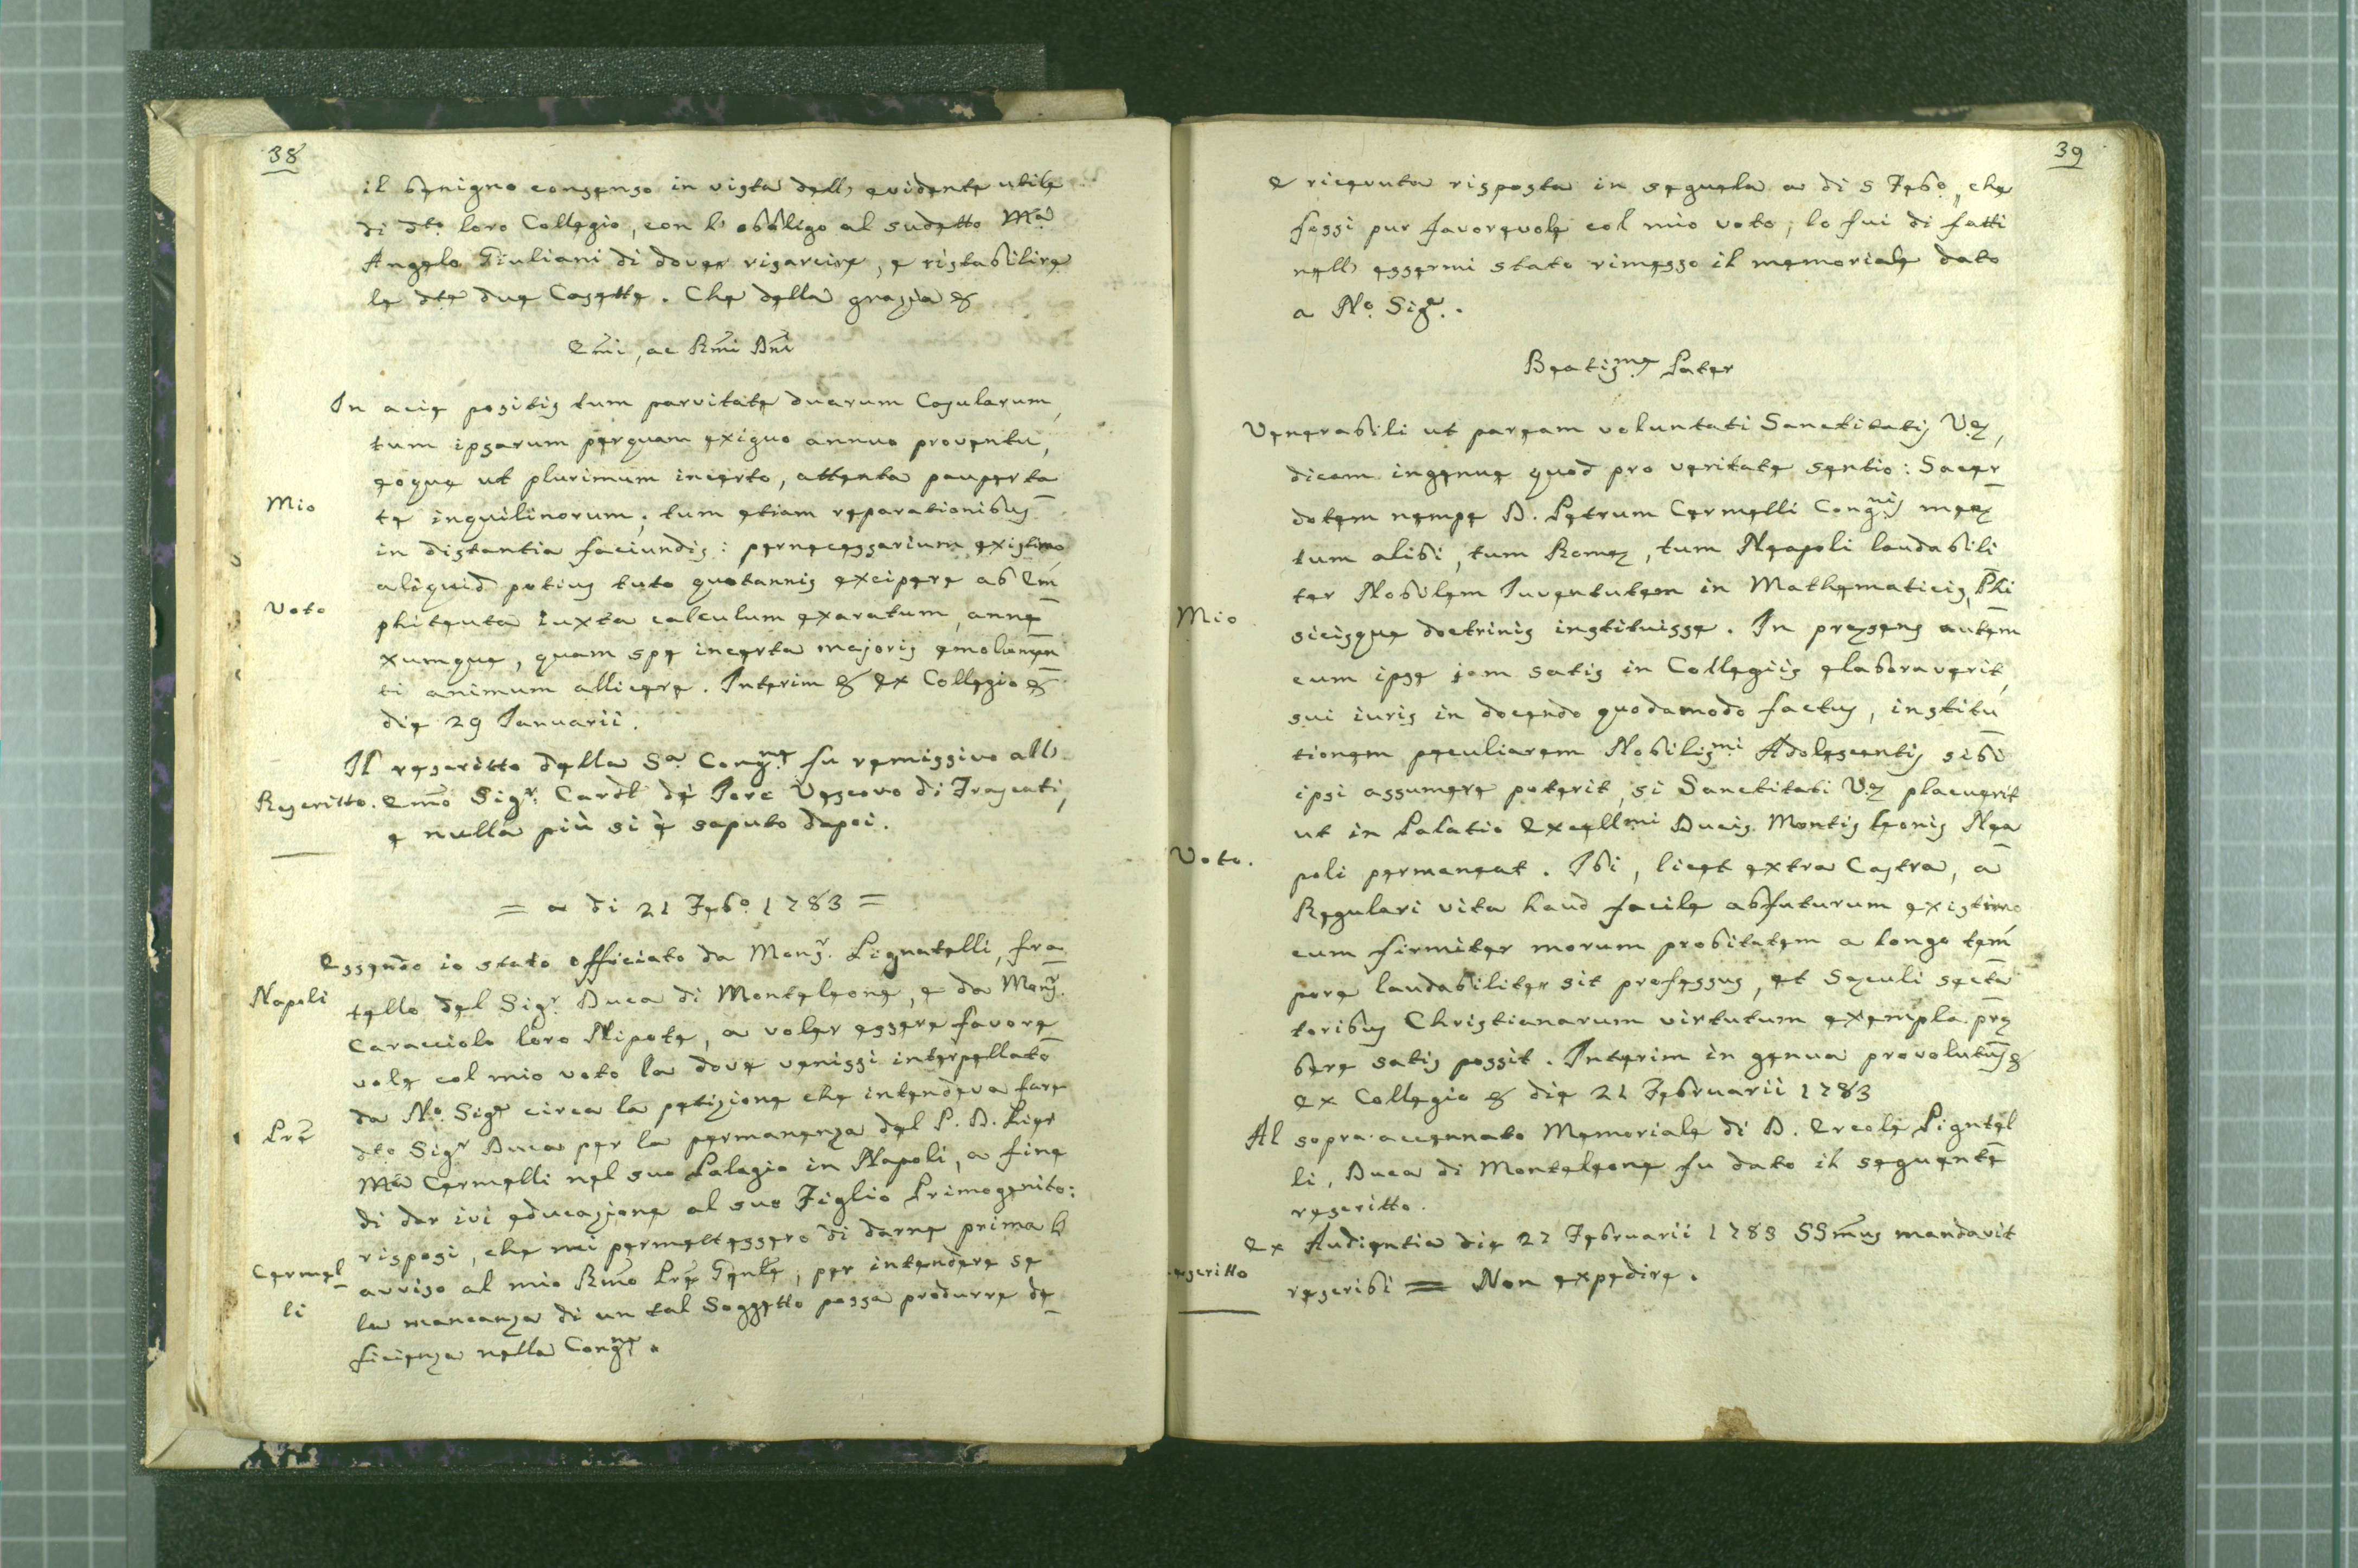 38
il benigno consenso in vista dell' evidente utile
di dto. loro Collegio, con l' obbligo al sudetto Mro
Angelo Giuliani di dover risarcire, e ristabilire
le dte due Casette. Che della grazia &
Emi, ac Rmi Dni
In acie positis tum parvitate duarum Casularum,
tum ipsarum perquam exiguo annuo proventu,
eoque ut plurimum incerto, attenta pauperta
Mio
te inquilinorum; tum etiam reparationibus
in distantia faciundis: pernecessarium existimo
aliquid potius tuto quotannis excipere ab Em
Voto
phiteuta iuxta calculum exaratum, anne
xumque, quam spe incerta majoris emolumen
ti animum allicere. Interim & ex Collegio &
die 29 Ianuarii.
Il rescritto della Sa. Congne. fu remissivo all'
Rescritto. Emo Sigr. Cardl de Iorc Vescovo di Frascati,
e nulla più si è saputo dapoi.
= a di 21 Febo. 1783 =
Essendo io stato officiato da Monsr. Pignatelli, fra
Napoli
tello del Sigr. Duca di Monteleone, e da Monsr.
Caracciolo loro Nipote, a voler essere favore
vole col mio voto la dove venissi interpellato
da No. Sigre circa la petizione che intendeva fare
Pre
dto. Sigr Duca per la permanenza del P. D. Pier
Ma Cermelli nel suo Palagio in Napoli, a fine
di dar ivi educazione al suo Figlio Primogenito:
risposi, che mi permettessero di darne prima l'
Cermel
avviso al mio Rmo Pre Genle, per intendere se
li
la mancanza di un tal Soggetto possa produrre de
ficienza nella Congne.
39
e ricevuta risposta in seguela a di 5 Febo., che
fossi pur favorevole col mio voto; lo fui di fatti
nell' essermi stato rimesso il memoriale dato
a No. Sigre.
Beatisme. Pater
Venerabili ut paream voluntati Sanctitatis Væ,
dicam ingenue quod pro veritate sentio: Sacer
dotem nempe D. Petrum Cermelli Congnis meæ
tum alibi, tum Romæ, tum Neapoli laudabili
ter Nobilem Iuventutem in Mathematicis, Phi
Mio
sicisque doctrinis instituisse. In præsens autem
cum ipse jam satis in Collegiis elaboraverit,
sui iuris in docendo quodamodo factus, institu
tionem peculiarem Nobilismi Adolescentis sibi
ipsi assumere poterit, si Sanctitati Væ placuerit
ut in Palatio Excellmi Ducis Montis leonis Nea
Voto.
poli permaneat. Ibi, licet extra Castra, a
Regulari vita haud facile abfuturum existimo
cum firmiter morum probitatem a longo tem
pore laudabiliter sit professus, et Sæculi secta
toribus Christianarum virtutum exempla præ
bere satis possit. Interim in genua provolutus &
ex Collegio & die 21 Februarii 1783
Al sopra accennato Memoriale di D. Ercole Pignatel
li, Duca di Monteleone fu dato il seguente
rescritto.
Ex Audientia die 22 Februarii 1783 SSmus mandavit
escritto
rescribi = Non expedire.